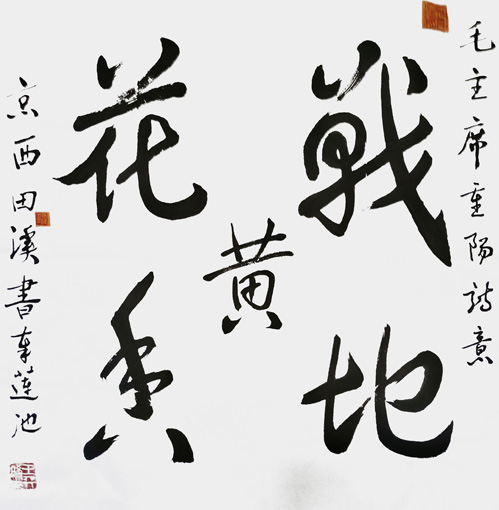 毛主席重陽詩意
戰地
黄
花香
京西田溪書蓮池